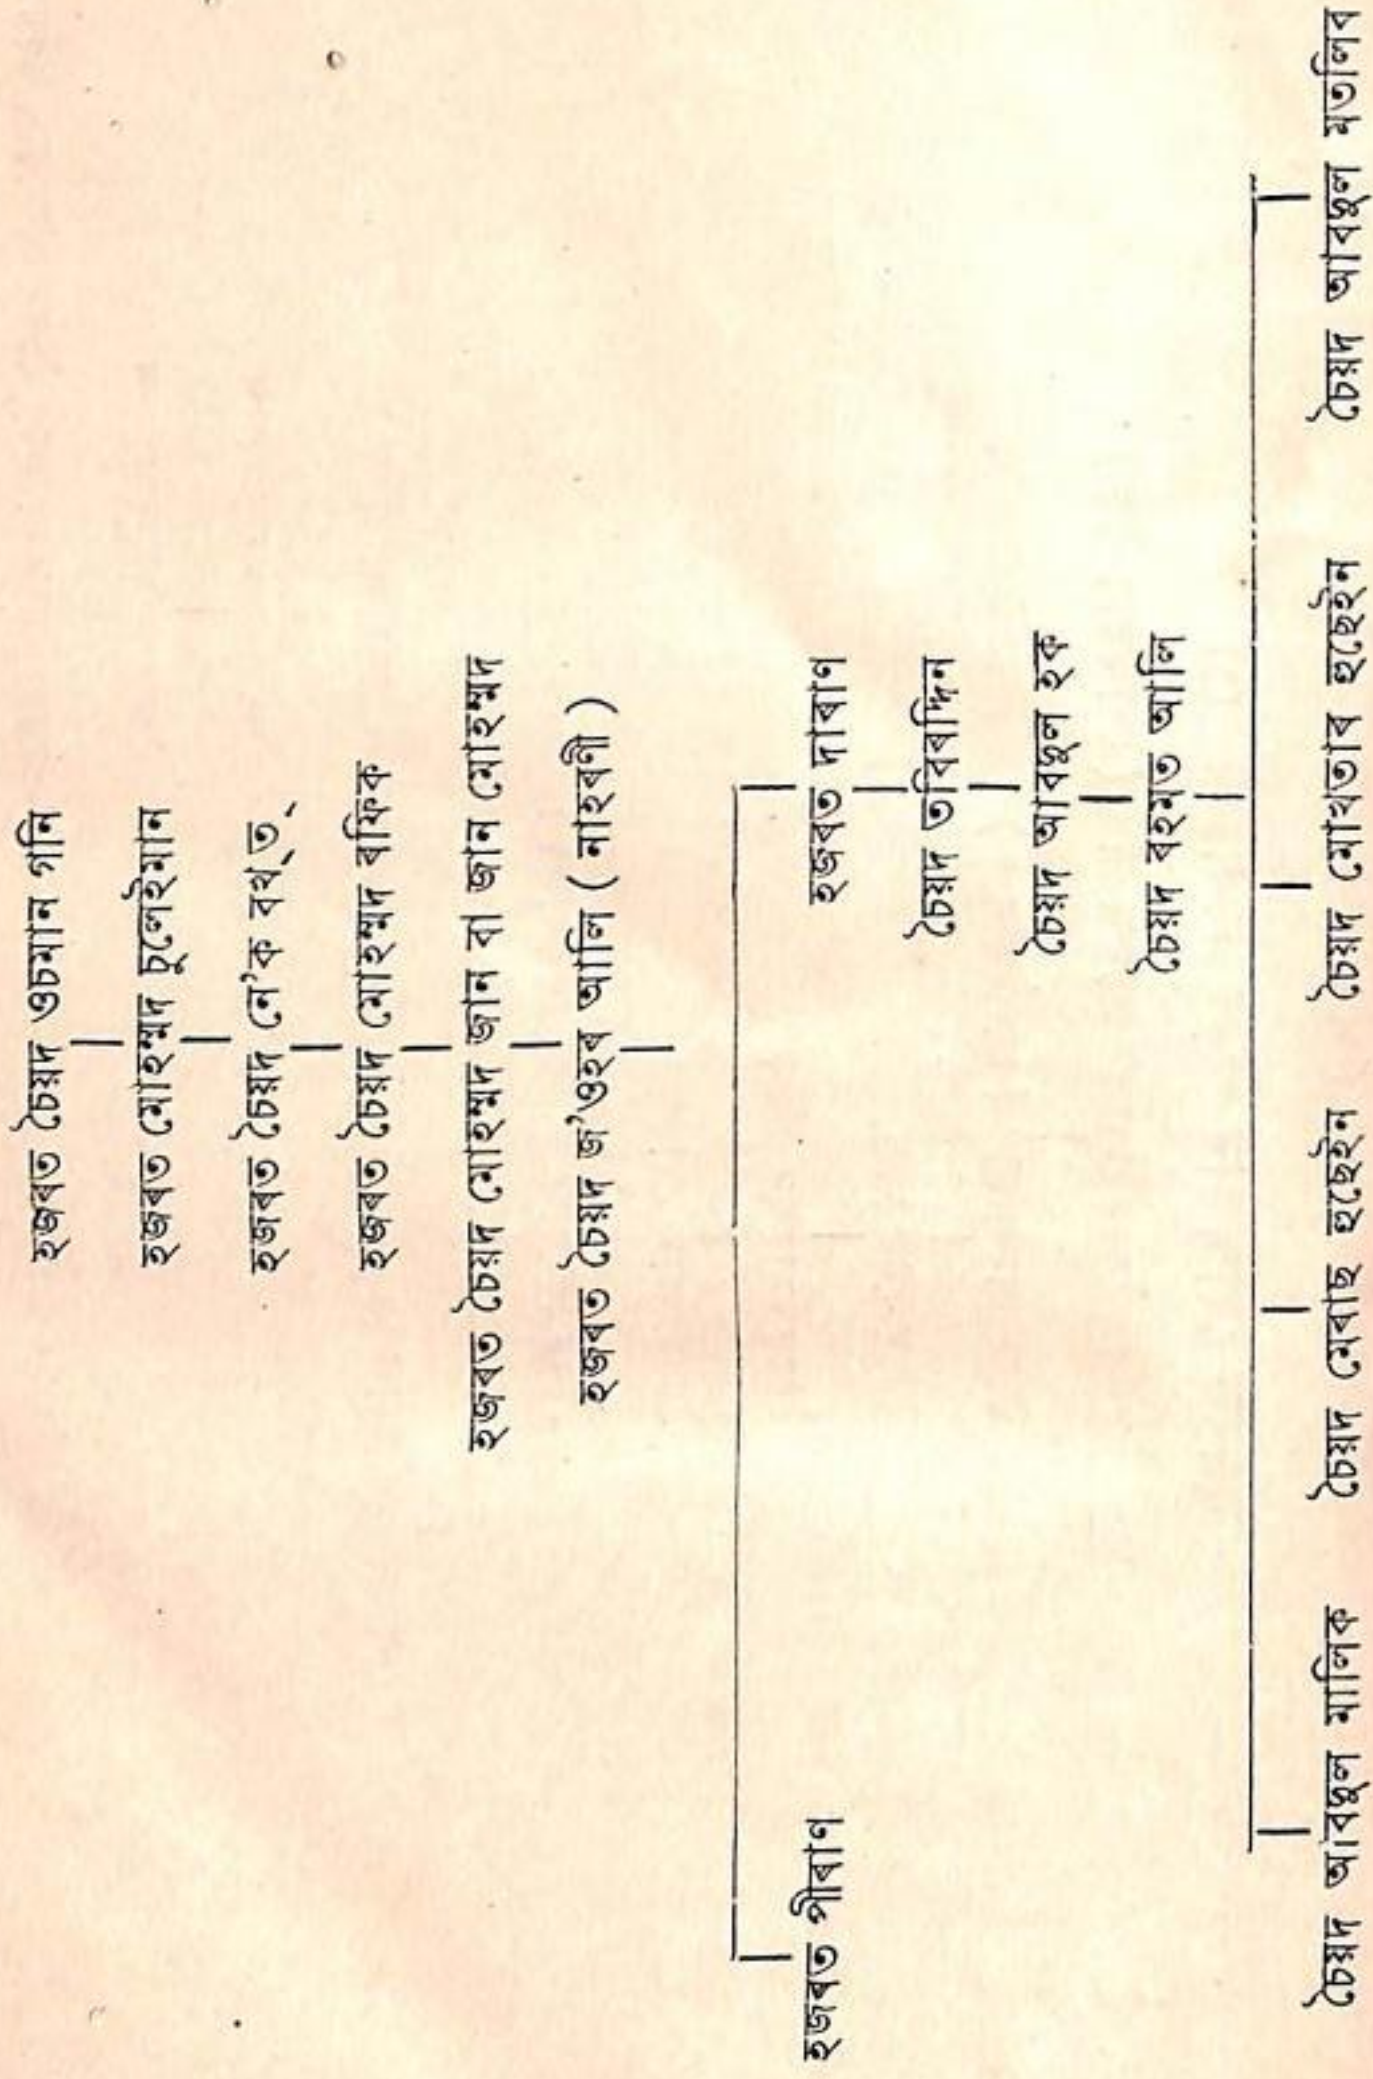 হজৰত চৈয়দ ওচমান গনি
হজৰত মোহম্মদ চুলেইমান
হজৰত চৈয়দ নে'ক বখ্ত্
হজৰত চৈয়দ মোহম্মদ ৰফিক
হজৰত চৈয়দ মোহম্মদ জান বা জান মোহম্মদ
হজৰত চৈয়দ জ'ওহৰ আলি ( নাহৰণী )
হজৰত পীৰাণ হজৰত দাৰাণ
চৈয়দ তবিবদ্দিন
চৈয়দ আবদুল হক
চৈয়দ ৰহমত আলি
চৈয়দ আবদুল মালিক চৈয়দ মেৰাছ হুছেইন চৈয়দ মোখতাৰ হুছেইন চৈয়দ আবদুল মতলিব